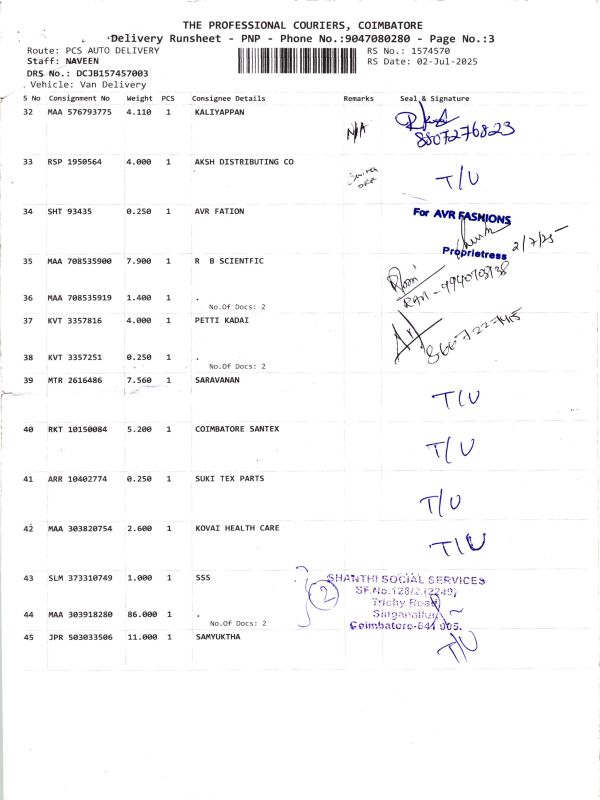 THE PROFESSIONAL COURIERS, COIMBATORE
Delivery Runsheet - PNP - Phone No.:9047080280 - Page No.:3
Route: PCS AUTO DELIVERY
RS No.: 1574570
Staff: NAVEEN
RS Date: 02-Jul-2025
DRS No.: DCJB157457003
Vehicle: Van Delivery
S No Consignment No Weight PCS Consignee Details Remarks Seal & Signature
32 MAA 576793775 4.110 1 KALIYAPPAN
N/A
8807276823
33 RSP 1950564 4.000 1 AKSH DISTRIBUTING CO
T/U
34 SHT 93435 0.250 1 AVR FATION
For AVR FASHIONS
Proprietress 2/7/25
35 MAA 708535900 7.900 1 R B SCIENTFIC
36 MAA 708535919 1.400 1 .
No.Of Docs: 2
37 KVT 3357816 4.000 1 PETTI KADAI
38 KVT 3357251 0.250 1 .
No.Of Docs: 2
39 MTR 2616486 7.560 1 SARAVANAN
T/U
40 RKT 10150084 5.200 1 COIMBATORE SANTEX
T/U
41 ARR 10402774 0.250 1 SUKI TEX PARTS
T/U
42 MAA 303820754 2.600 1 KOVAI HEALTH CARE
T/U
43 SLM 373310749 1.000 1 SSS
2
SHANTHI SOCIAL SERVICES
Trichy Road
44 MAA 303918280 86.000 1 .
No.Of Docs: 2
45 JPR 503033506 11.000 1 SAMYUKTHA
T/U